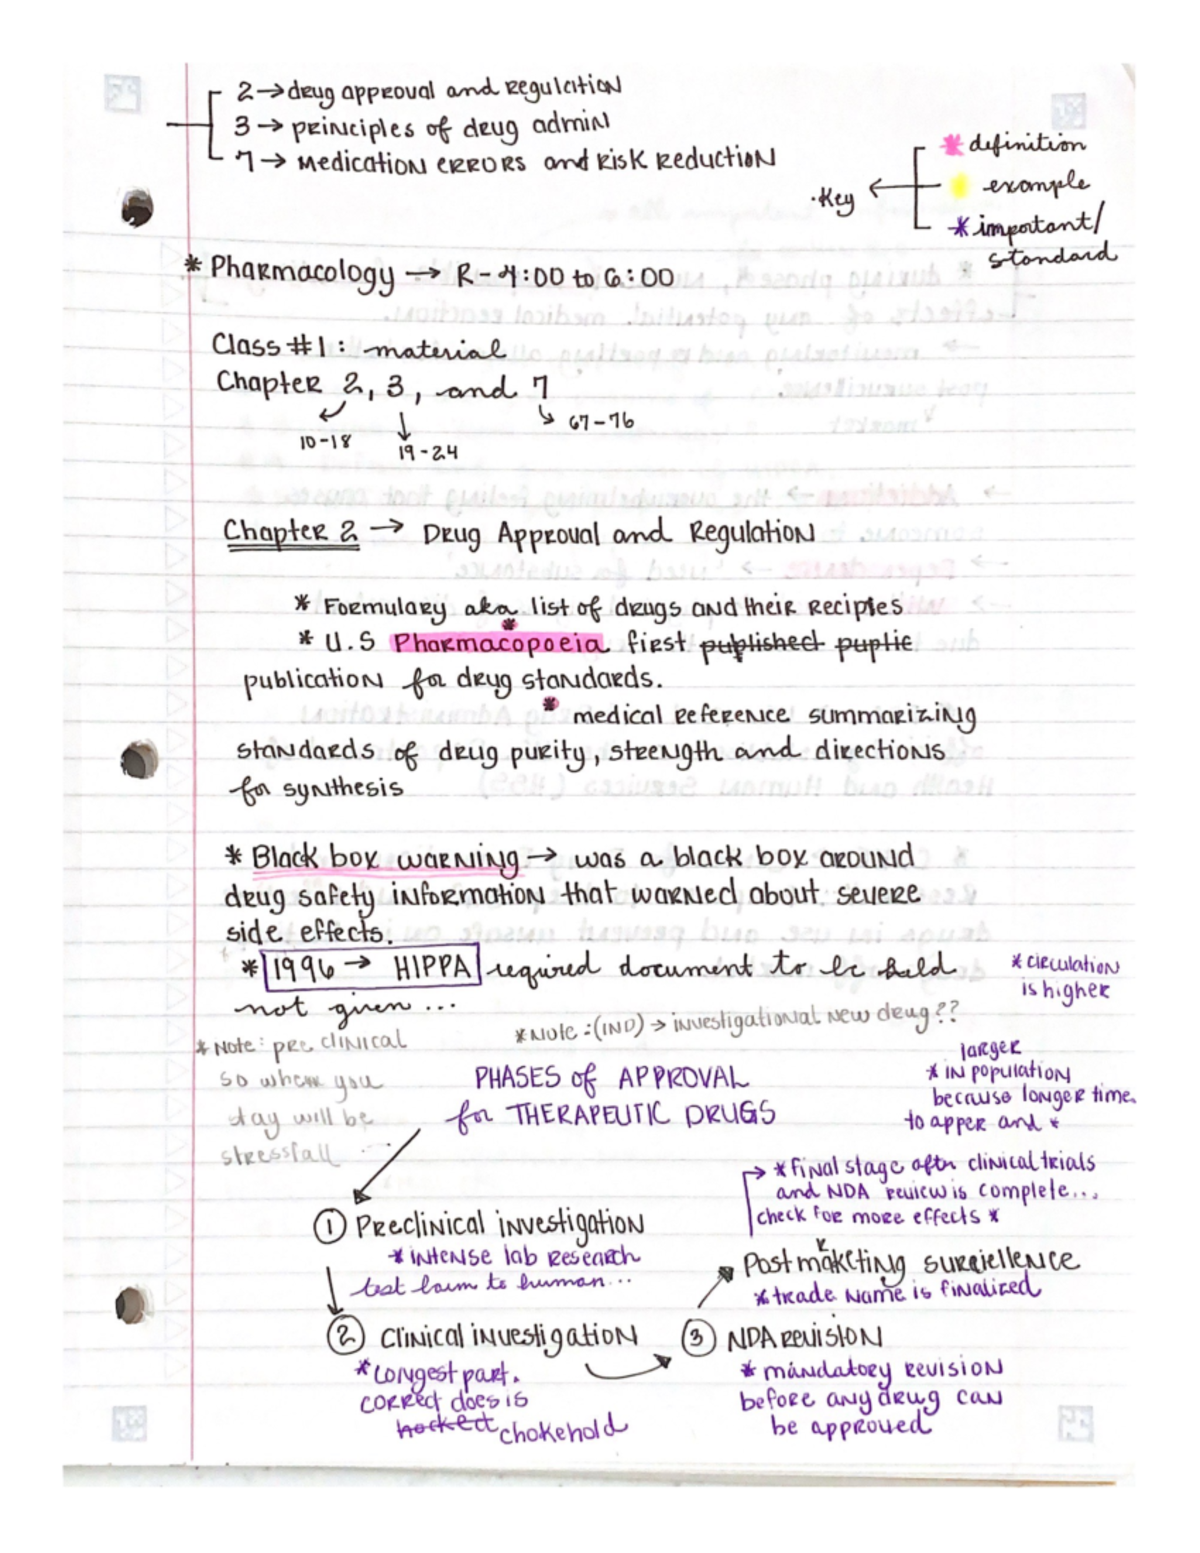 2 → drug approval and regulation
3 → principles of drug admin
7 → Medication errors and risk reduction
·Key
* definition
example
* important/
standard
* Pharmacology → R - 4:00 to 6:00
Class #1: material
Chapter 2, 3, and 7
10-18
19-24
67-76
Chapter 2 → Drug Approval and Regulation
* Formulary aka list of drugs and their recipies
* U.S Pharmacopoeia first published puplic
publication for drug standards.
* medical reference summarizing
standards of drug purity, strength and directions
for synthesis
* Black box warning → was a black box around
drug safety information that warned about severe
side effects.
* 1996 → HIPPA required document to be held
not given ...
* circulation
is higher
* Note: (IND) → investigational new drug??
* Note: pre clinical
so when you
stay will be
stressfall ...
larger
* in population
because longer time
to apper and *
PHASES of APPROVAL
for THERAPEUTIC DRUGS
→ * final stage after clinical trials
and NDA review is complete...
check for more effects *
① Preclinical investigation
* intense lab research
test to human...
Postmarkting surviellence
* trade name is finalized
② Clinical investigation
* longest part.
correct does is
chokehold
③ NDA revision
* mandatory revision
before any drug can
be approved